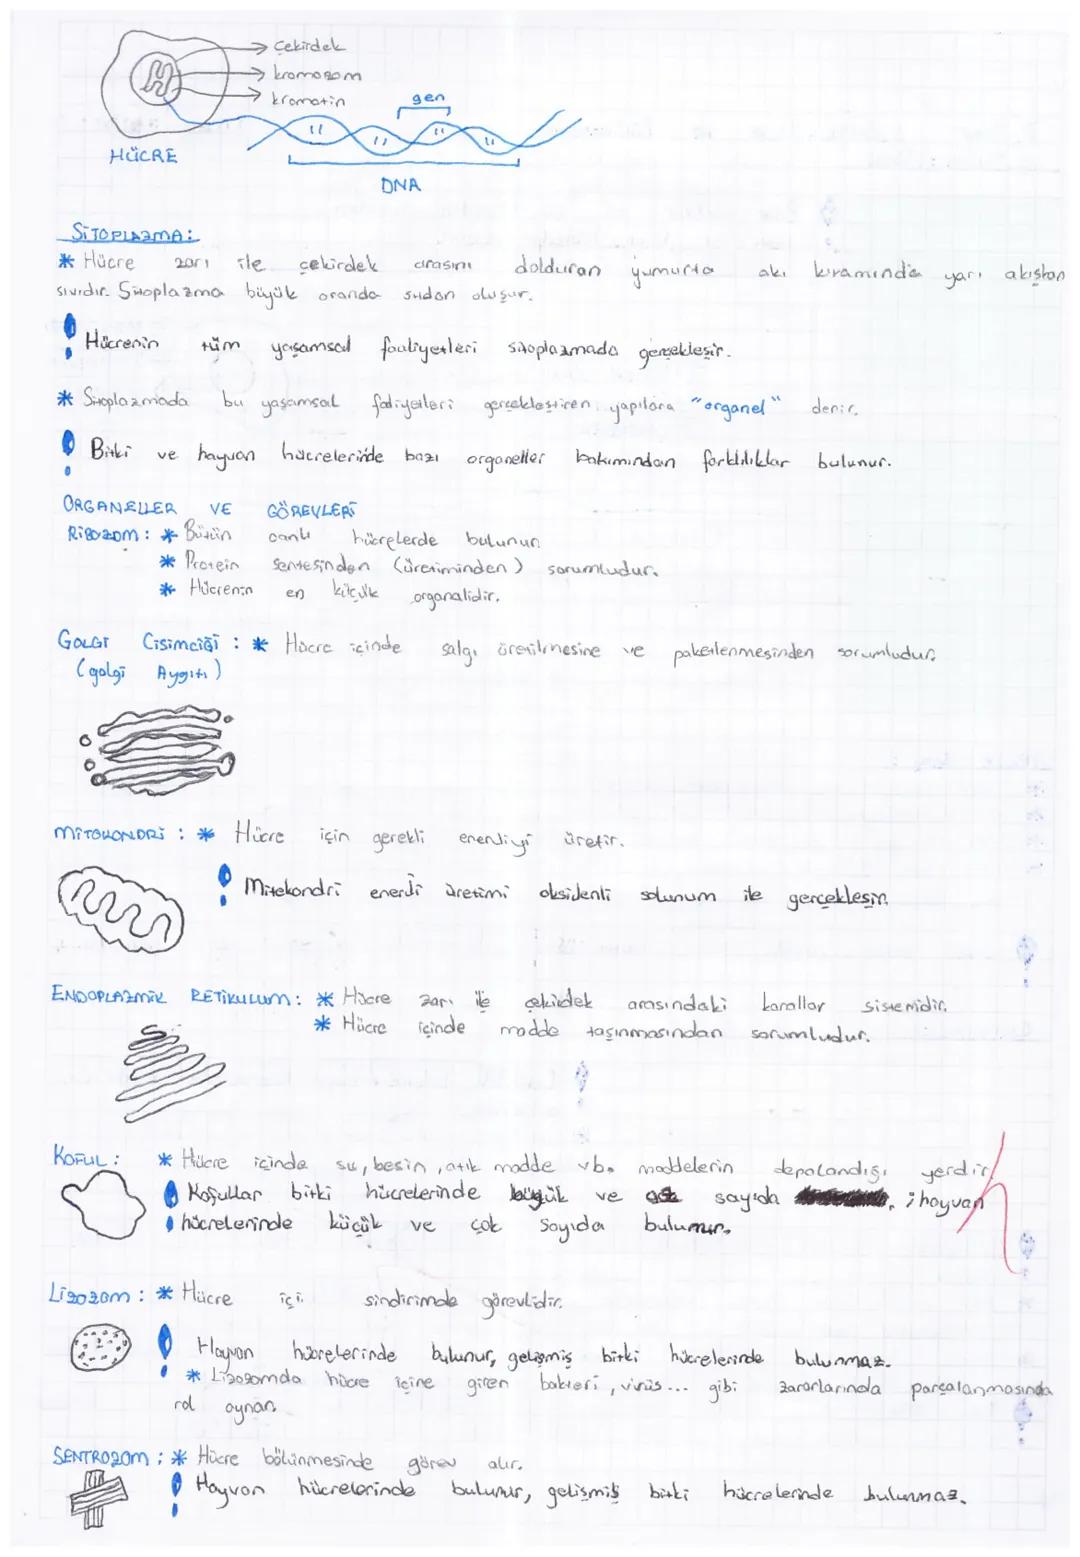 Çekirdek
kromozom
kromatin
gen
HÜCRE
DNA
SİTOPLAZMA:
* Hücre zarı ile çekirdek arasını dolduran yumurta akı kıvamında yarı akışkan
sıvıdır. Sitoplazma büyük oranda sudan oluşur.
! Hücrenin tüm yaşamsal faaliyetleri sitoplazmada gerçekleşir.
* Sitoplazmada bu yaşamsal faliyetleri gerçekleştiren yapılara "organel" denir.
! Bitki ve hayvan hücrelerinde bazı organeller bakımından farklılıklar bulunur.
ORGANELLER VE GÖREVLERİ
RİBOZOM: * Bütün canlı hücrelerde bulunur.
* Protein sentesinden (üretiminden) sorumludur.
* Hücrenin en küçük organalidir.
GOLGİ Cisimciği : * Hücre içinde salgı üretilmesine ve paketlenmesinden sorumludur.
(golgi Aygıtı)
MİTOKONDRİ : * Hücre için gerekli enerjiyi üretir.
! Mitekondri enerji üretimi oksijenli solunum ile gerçekleşir.
ENDOPLAZMİK RETİKULUM: * Hücre zarı ile çekirdek arasındaki kanallar sistemidir.
* Hücre içinde madde taşınmasından sorumludur.
KOFUL: * Hücre içinde su, besin, atık madde vb. maddelerin depolandığı yerdir.
! Kofullar bitki hücrelerinde büyük ve az sayıda ; hayvan
hücrelerinde küçük ve çok sayıda bulunur.
Lizozom: * Hücre içi sindirimde görevlidir.
! Hayvan hücrelerinde bulunur, gelişmiş bitki hücrelerinde bulunmaz.
* Lizozomda hücre içine giren bakteri, virüs... gibi zararlarında parçalanmasında
rol oynar.
SENTROZOM : * Hücre bölünmesinde görev alır.
! Hayvan hücrelerinde bulunur, gelişmiş bitki hücrelerinde bulunmaz.